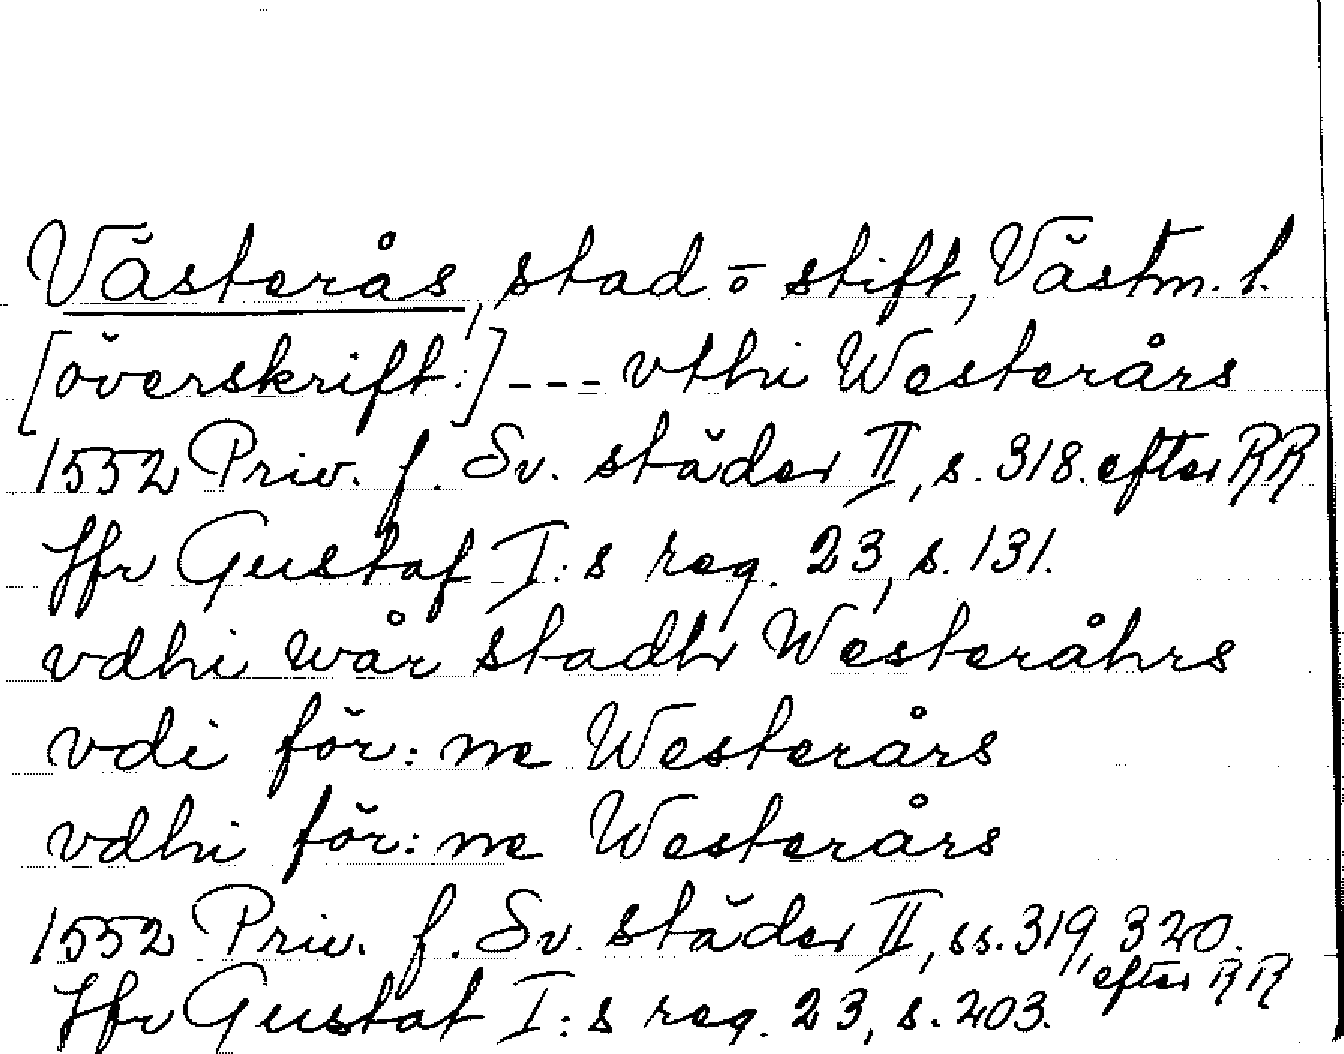 Västerås, stad o stift, Västm. l.
[överskrift:] --- vthi Westerårs
1552 Priv. f. Sv. städer II, s. 318. efter RR
Jfr Gustaf I:s reg. 23, s. 131.
vdhi wår stadh Westeråhrs
vdi för:ne Westerårs
vdhi för:ne Westerårs
1552 Priv. f. Sv. städer II, ss. 319, 320.
efter RR
Jfr Gustaf I:s reg. 23, s. 203.